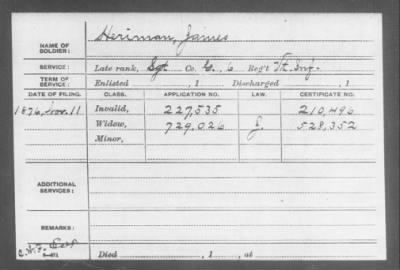 NAME OF SOLDIER: Herriman, James
SERVICE: Late rank, Sgt Co. G, 6 Reg't Vt. Inf.
TERM OF SERVICE: Enlisted , 1 Discharged , 1
DATE OF FILING. CLASS. APPLICATION NO. LAW. CERTIFICATE NO.
1876, Nov. 11 Invalid, 227,535 210,496
Widow, 729,026 J. 528,352
Minor,
ADDITIONAL SERVICES:
REMARKS:
Died , 1 , at